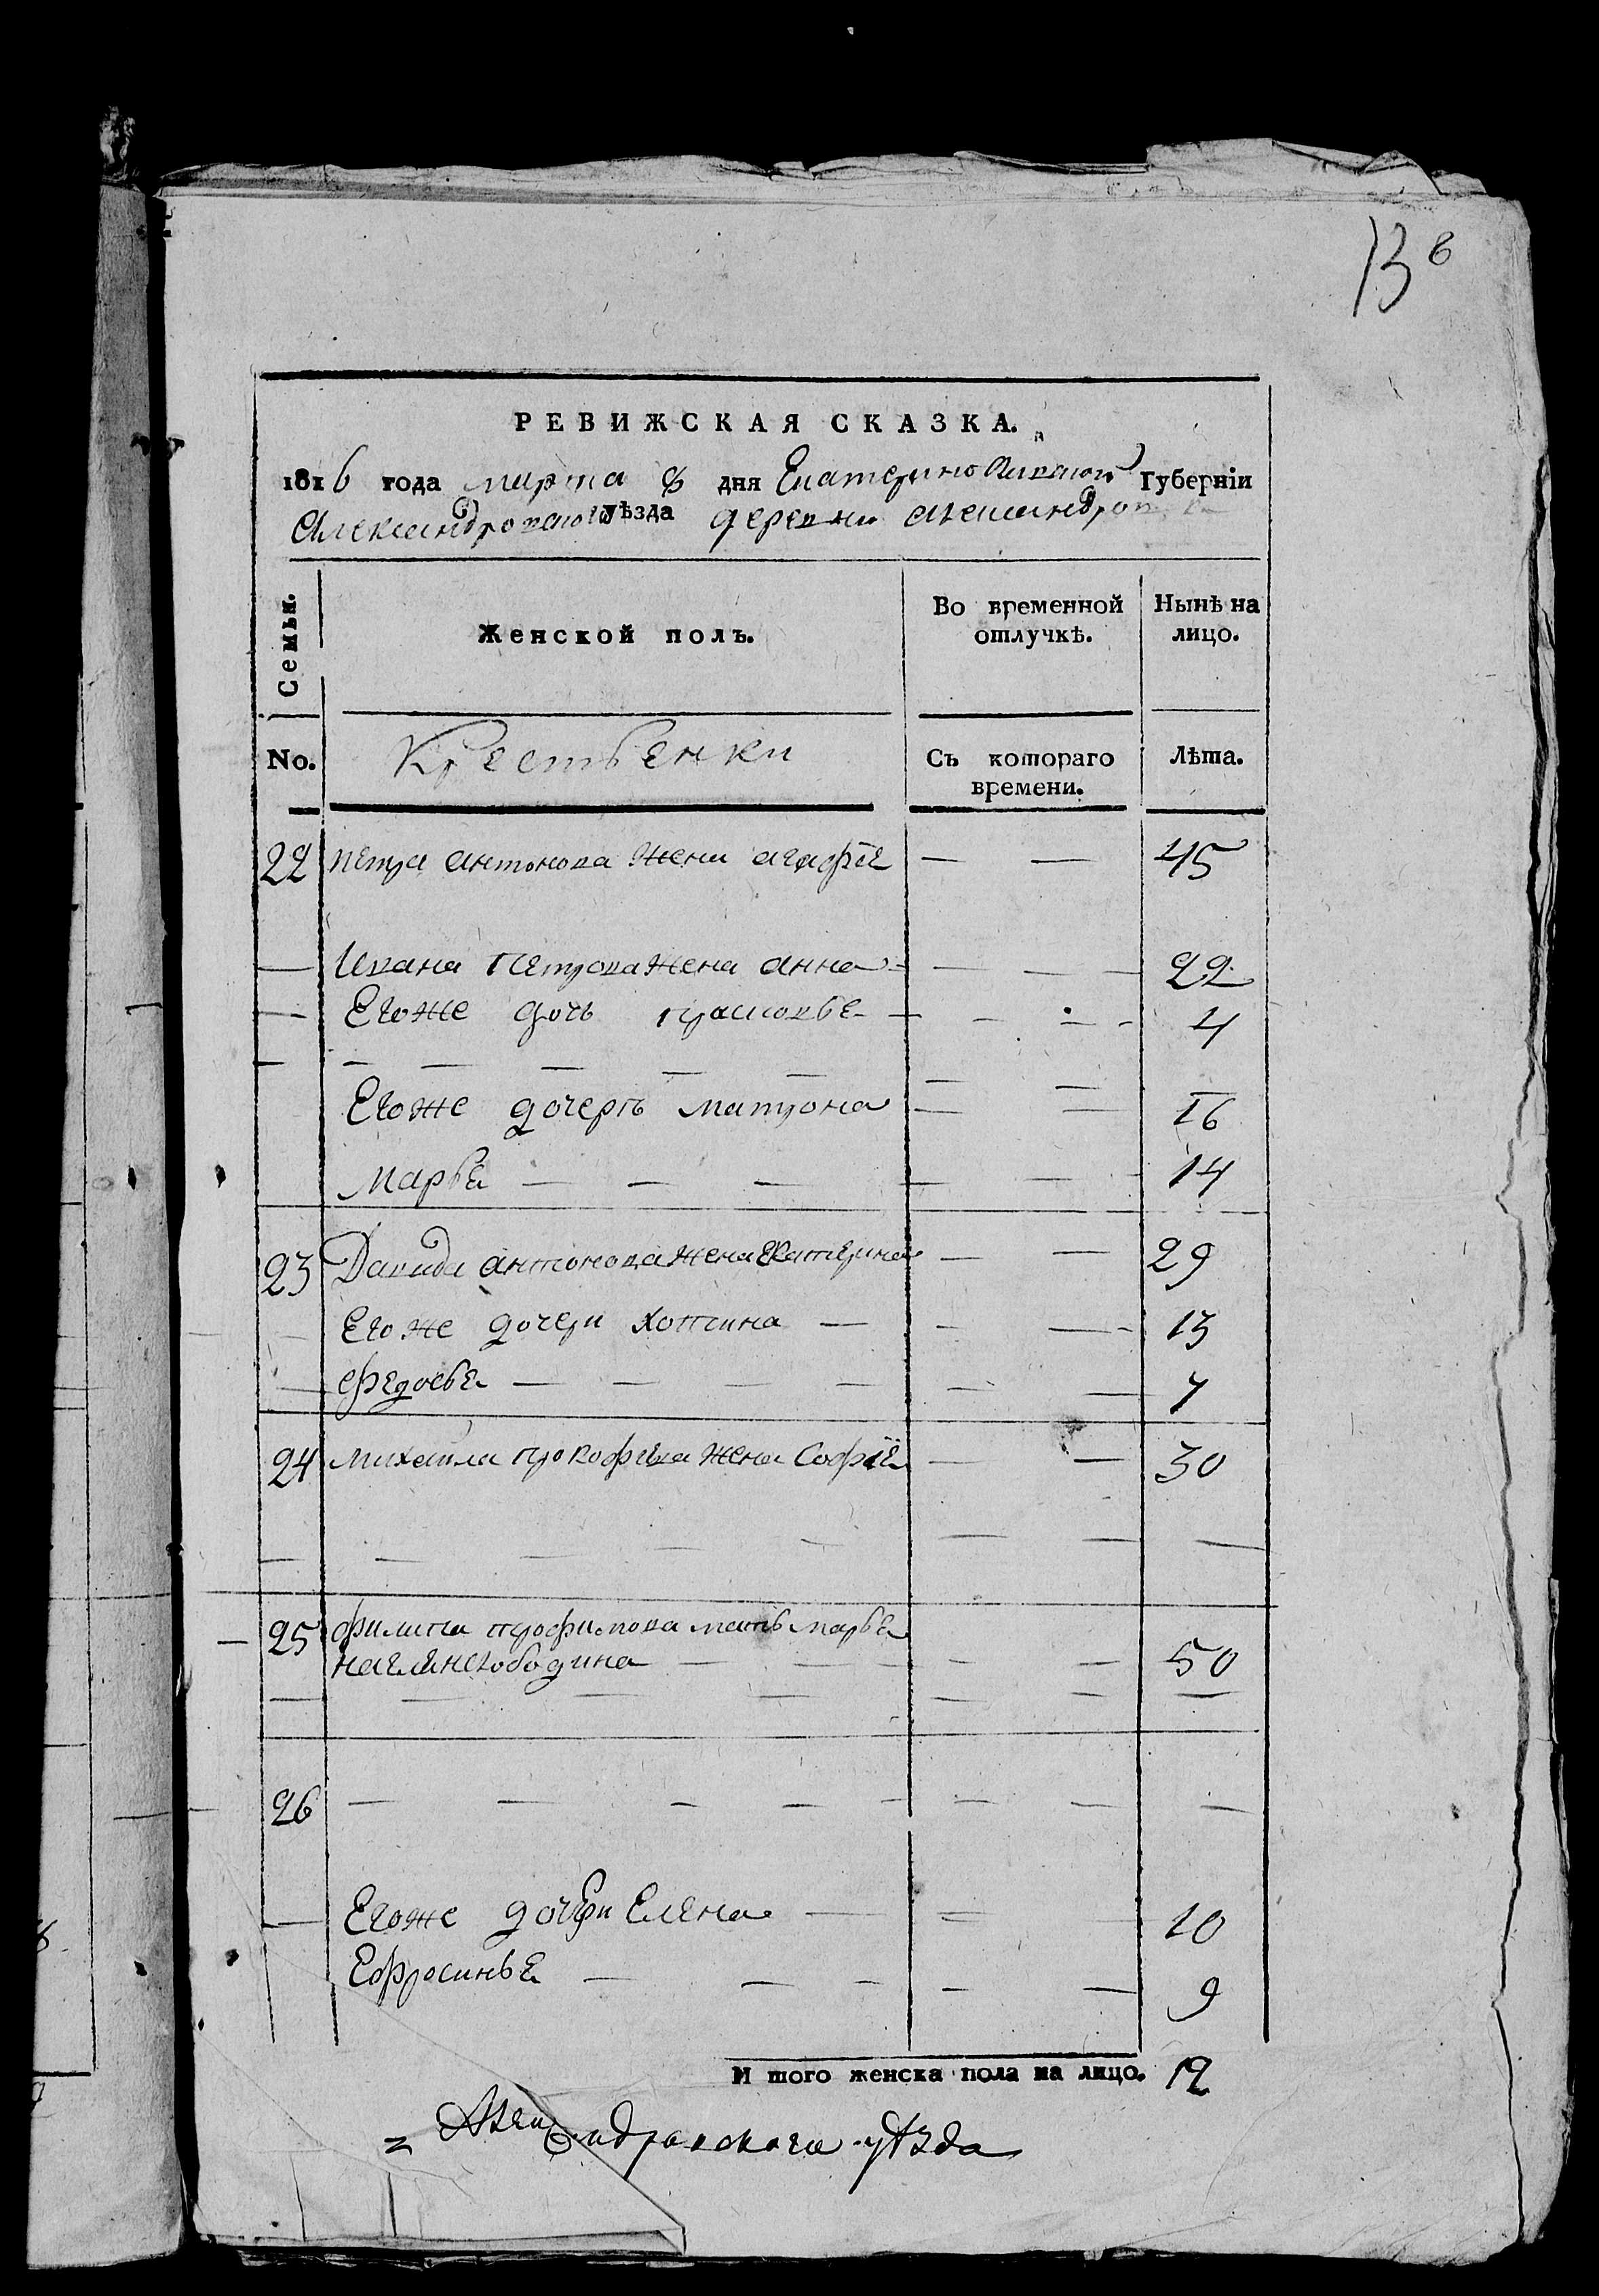 13 6
РЕВИЖСКАЯ СКАЗКА.
1816 года марта 8 дня Екатеринославской Губерніи
Александровского уѣзда деревни
Семьи.
Женской полъ.
Во временной отлучкѣ.
Нынѣ на лицо.
No.
Крестьенки
Съ котораго времени.
Лѣта.
22 петра антонова жена агафiе — — 45
— Ивана Петрова жена анна — — — 22
— Егоже дочь прасковье — — — 4
— — — — — —
Егоже дочерь матрона — — 16
Марье — — — — — 14
23 Давида антонова жена Екатерина — — 29
Егоже дочери хотина — — — 13
федосье — — — — — — 7
24 михаила прокофьева жена Софiе — — 30
— — — — — — — —
25 филипа трофимова мать марье
— — — — 50
— — — — — — —
26 — — — — — — — —
— Егоже дочери Елена — — 10
Ефросинье — — — — — 9
И того женска пола на лицо. 12
Александровского уѣзда